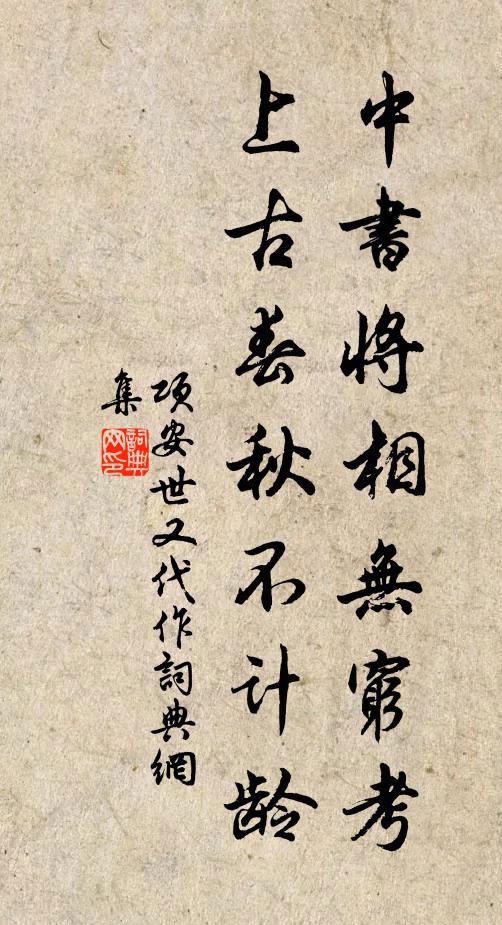 中書將相無窮考
上古春秋不计龄
项安世又代作詞典網
集
詞典網印